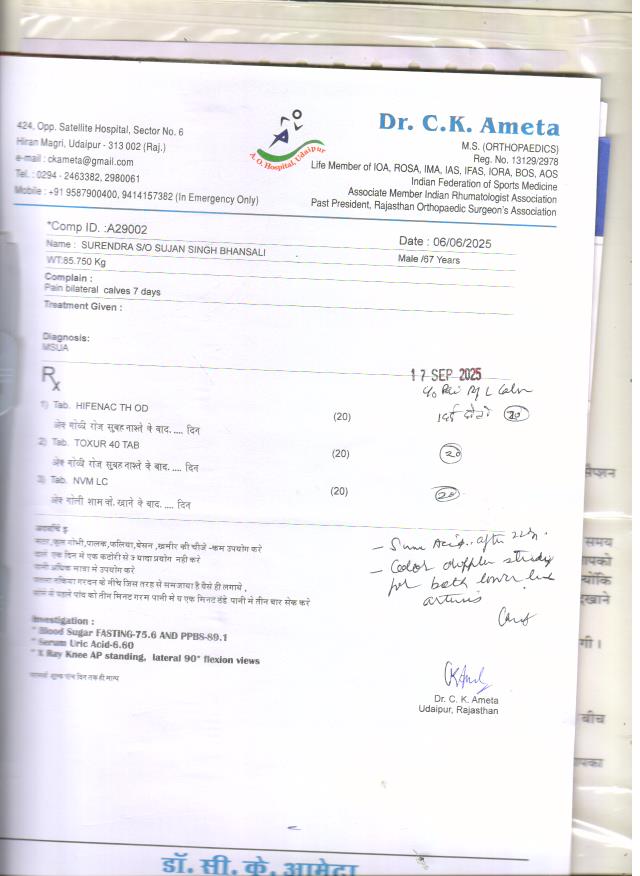 424, Opp. Satellite Hospital, Sector No. 6
Hiran Magri, Udaipur - 313 002 (Raj.)
e-mail : ckameta@gmail.com
Tel. : 0294 - 2463382, 2980061
Mobile : +91 9587900400, 9414157382 (In Emergency Only)
A. O. Hospital, Udaipur
Dr. C.K. Ameta
M.S. (ORTHOPAEDICS)
Reg. No. 13129/2978
Life Member of IOA, ROSA, IMA, IAS, IFAS, IORA, BOS, AOS
Indian Federation of Sports Medicine
Associate Member Indian Rhumatologist Association
Past President, Rajasthan Orthopaedic Surgeon's Association
*Comp ID. :A29002
Date : 06/06/2025
Name : SURENDRA S/O SUJAN SINGH BHANSALI
Male /67 Years
WT:85.750 Kg
Complain :
Pain bilateral calves 7 days
Treatment Given :
Diagnosis:
MSUA
Rx
17 SEP 2025
1) Tab. HIFENAC TH OD (20) 20
अेक गोली रोज सुबह नाश्ते के बाद. .... दिन
2) Tab. TOXUR 40 TAB (20) 20
अेक गोली रोज सुबह नाश्ते के बाद. .... दिन
3) Tab. NVM LC (20) 20
अेक गोली शाम को. खाने के बाद. .... दिन
मटर,फुल गोभी,पालक,फलिया,बेसन ,खमीर की चीजे -कम उपयोग करे
दाले एक दिन में एक कटोरी से ज्यादा प्रयोग नही करे
पानी अधिक मात्रा में उपयोग करे
पतला तकिया गरदन के नीचे जिस तरह से समजाया है वैसे ही लगाये ,
सोने से पहले पांव को तीन मिनट गरम पानी में व एक मिनट ठंडे पानी में तीन बार सेक करे
- Color doppler study
for both lower limb
Investigation :
* Blood Sugar FASTING-75.6 AND PPBS-89.1
* Serum Uric Acid-6.60
* X Ray Knee AP standing, lateral 90° flexion views
Dr. C. K. Ameta
Udaipur, Rajasthan
डॉ. सी. के. आमेटा
समय
बीच